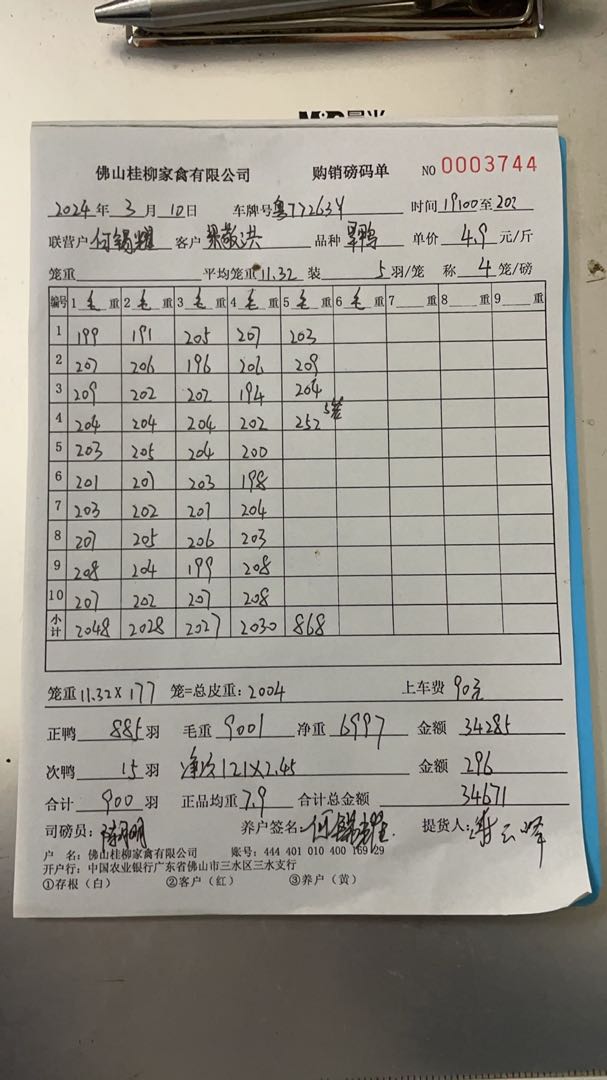 M&G晨光
佛山桂柳家禽有限公司 购销磅码单 NO 0003744
2024年 3月 10日 车牌号粤77263Y 时间 19:00至202
联营户何锡耀 客户 梁敬洪 品种 旱鸭 单价 4.9 元/斤
笼重 平均笼重11.32 装 5 羽/笼 称 4 笼/磅
编号 1 毛 重 2 毛 重 3 毛 重 4 毛 重 5 毛 重 6 毛 重 7 重 8 重 9 重
1 199 191 205 207 203
2 207 206 196 206 209
3 209 202 202 194 204
4 204 204 204 202 252 5笼
5 203 205 204 200
6 201 207 203 198
7 203 202 201 204
8 207 205 206 203
9 208 204 199 208
10 207 202 207 208
小计 2048 2028 2027 2030 868
笼重 11.32 × 177 笼=总皮重: 2004 上车费 90元
正鸭 885 羽 毛重 9001 净重 6997 金额 34285
次鸭 15 羽 净冷 121×2.45 金额 296
合计 900 羽 正品均重 7.9 合计总金额 34671
司磅员: 养户签名: 何锡耀 提货人:
户 名: 佛山桂柳家禽有限公司 账号: 444 401 010 400 169 29
开户行: 中国农业银行广东省佛山市三水区三水支行
①存根（白） ②客户（红） ③养户（黄）